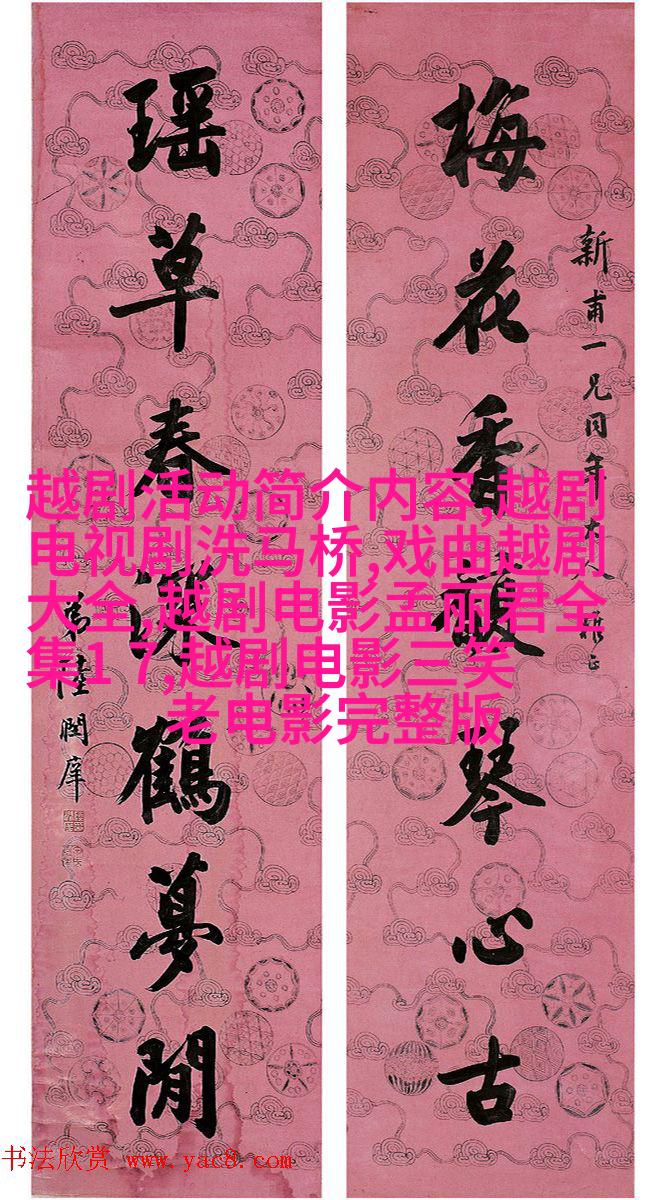 新甫一兄同年大人雅正
梅花香琴心古
瑶草春深鶴夢閒
陸潤庠
越剧活动简介内容,越剧
电视剧洗马桥,戏曲越剧
大全,越剧电影孟丽君全
集1 7,越剧电影三笑
老电影完整版
书法欣赏 www.yac8.com